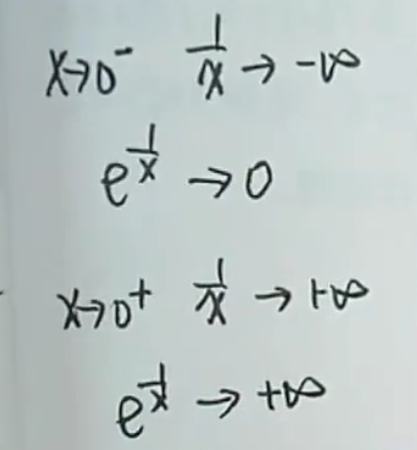 x→0⁻ 1/x → -∞
e^(1/x) → 0
x→0⁺ 1/x → +∞
e^(1/x) → +∞